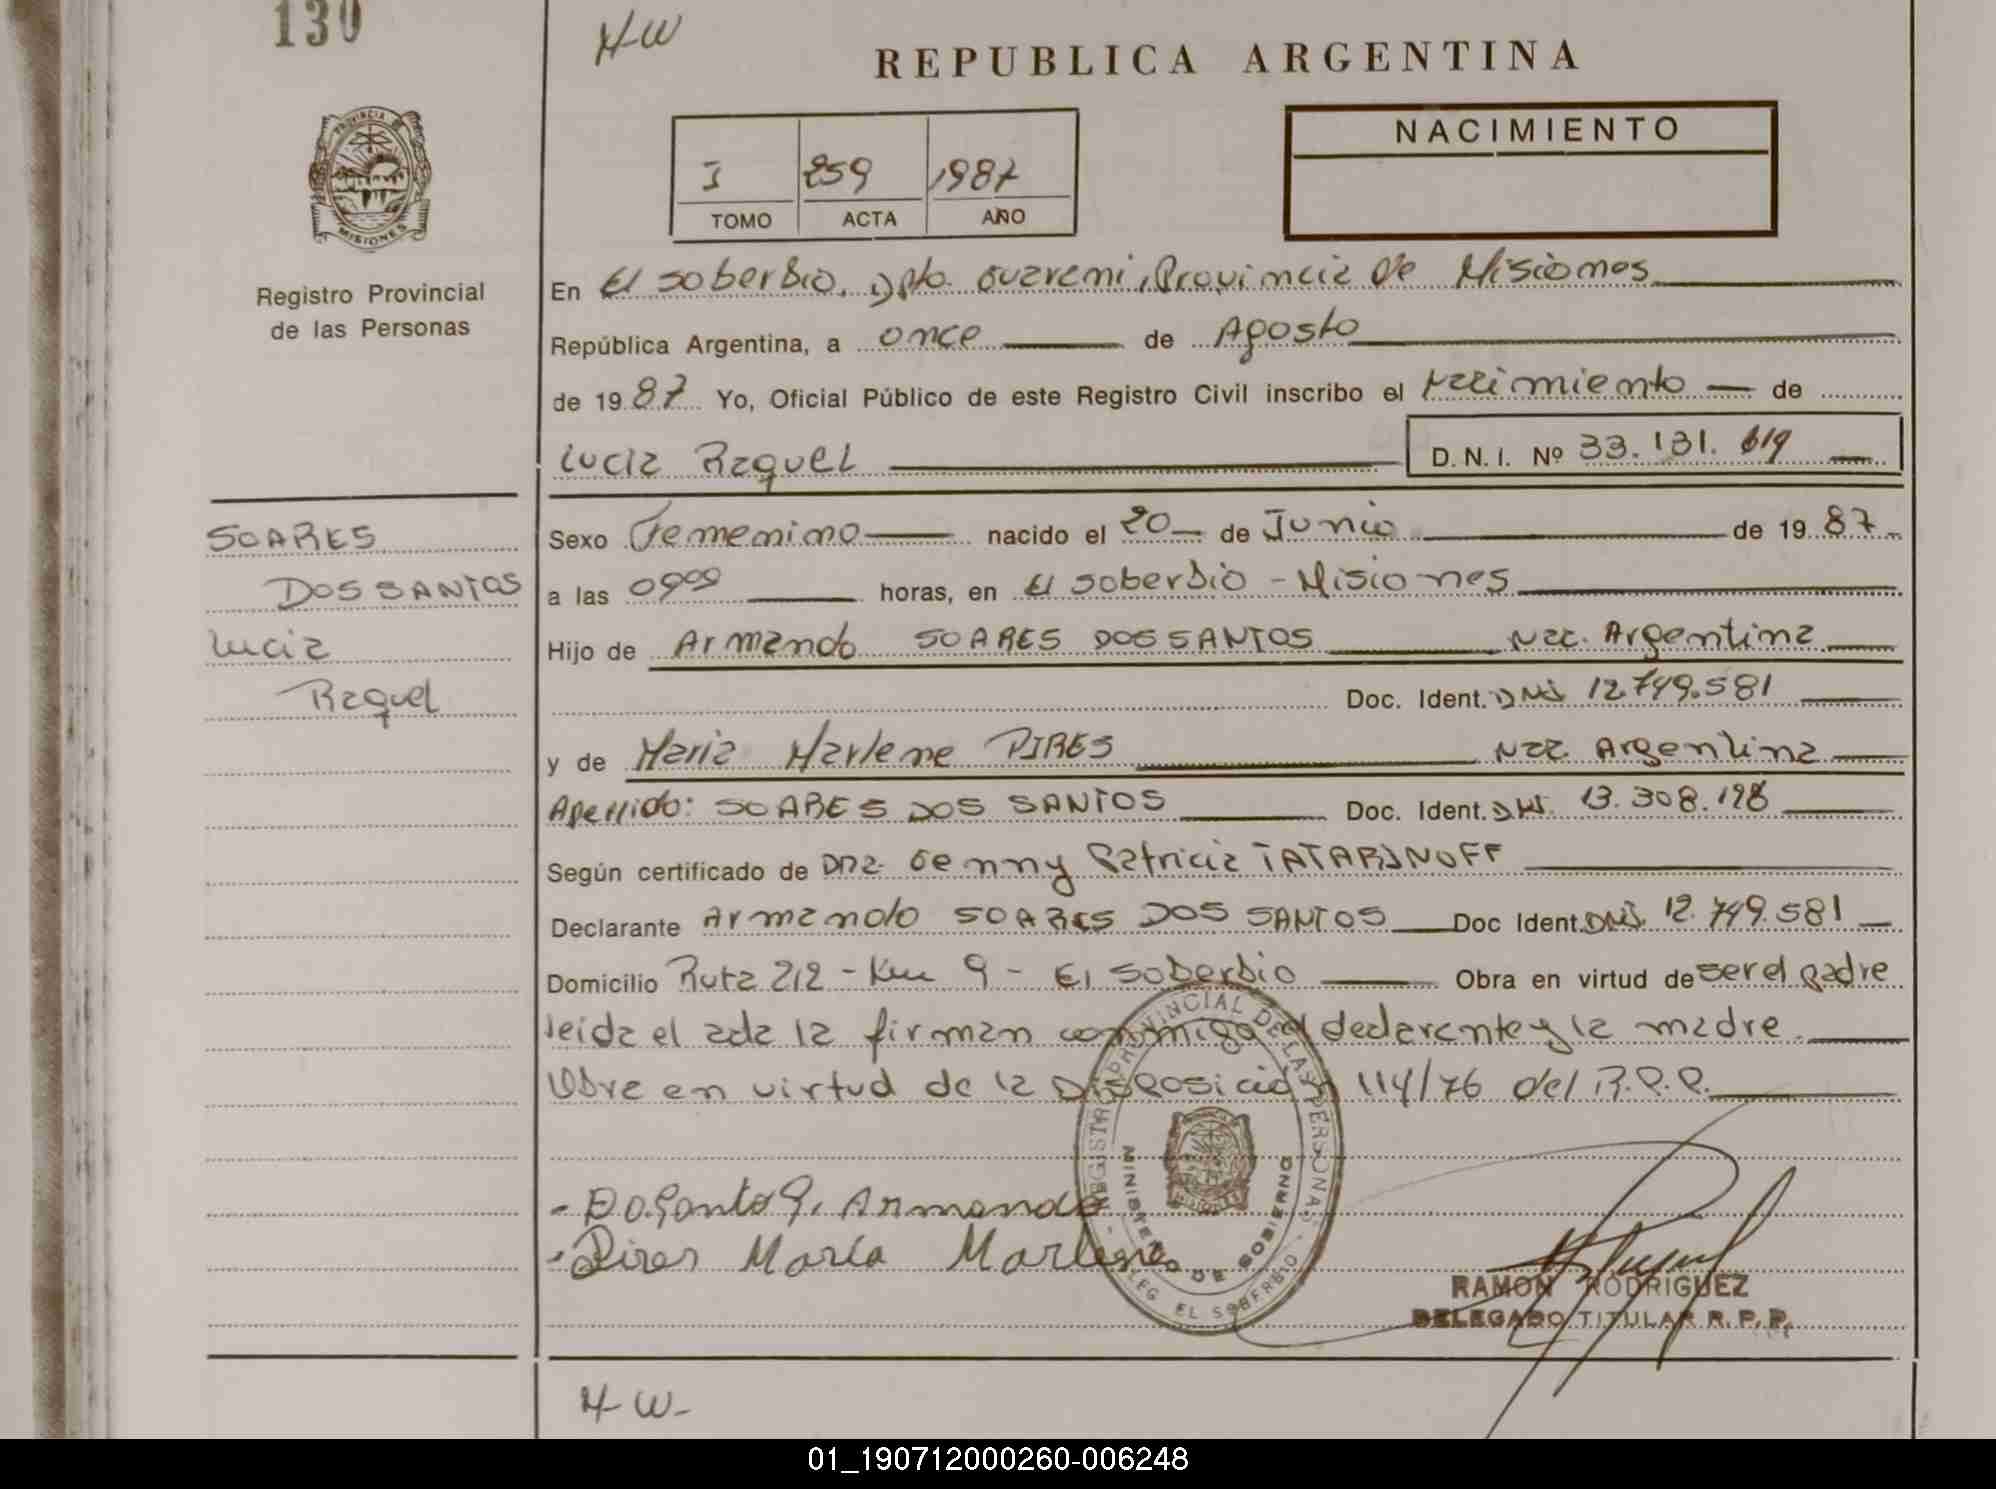 130
H-W
REPUBLICA ARGENTINA
PROVINCIA DE
MISIONES
Registro Provincial
de las Personas
I 259 1987
TOMO ACTA AÑO
NACIMIENTO
En El Soberbio, Dpto. Guarani, Provincia de Misiones
República Argentina, a once de Agosto
de 1987 Yo, Oficial Público de este Registro Civil inscribo el Nacimiento de
Lucia Raquel D.N.I. Nº 33.131.619
SOARES
DOS SANTOS
Lucia
Raquel
Sexo Femenino nacido el 20 de Junio de 1987
a las 0900 horas, en El Soberbio - Misiones
Hijo de Armando SOARES DOS SANTOS Nac. Argentina
Doc. Ident. DNI 12.749.581
y de Maria Marlene PIRES Nac. Argentina
Apellido: SOARES DOS SANTOS Doc. Ident. DNI. 13.308.198
Según certificado de Dra. Genny Patricia TATARINOFF
Declarante Armando SOARES DOS SANTOS Doc Ident. DNI. 12.749.581
Domicilio Ruta 212 - Km 9 - El Soberbio Obra en virtud de ser el padre
leida el acta la firman conmigo el declarante y la madre.
Obra en virtud de la Disposición 114/76 del R.P.P.
- Do Santo S. Armando
- Pires María Marlene
REGISTRO PROVINCIAL DE LAS PERSONAS
MINISTERIO DE GOBIERNO
DELEG. EL SOBERBIO
RAMON RODRIGUEZ
DELEGADO TITULAR R.P.P.
H-W-
01_190712000260-006248